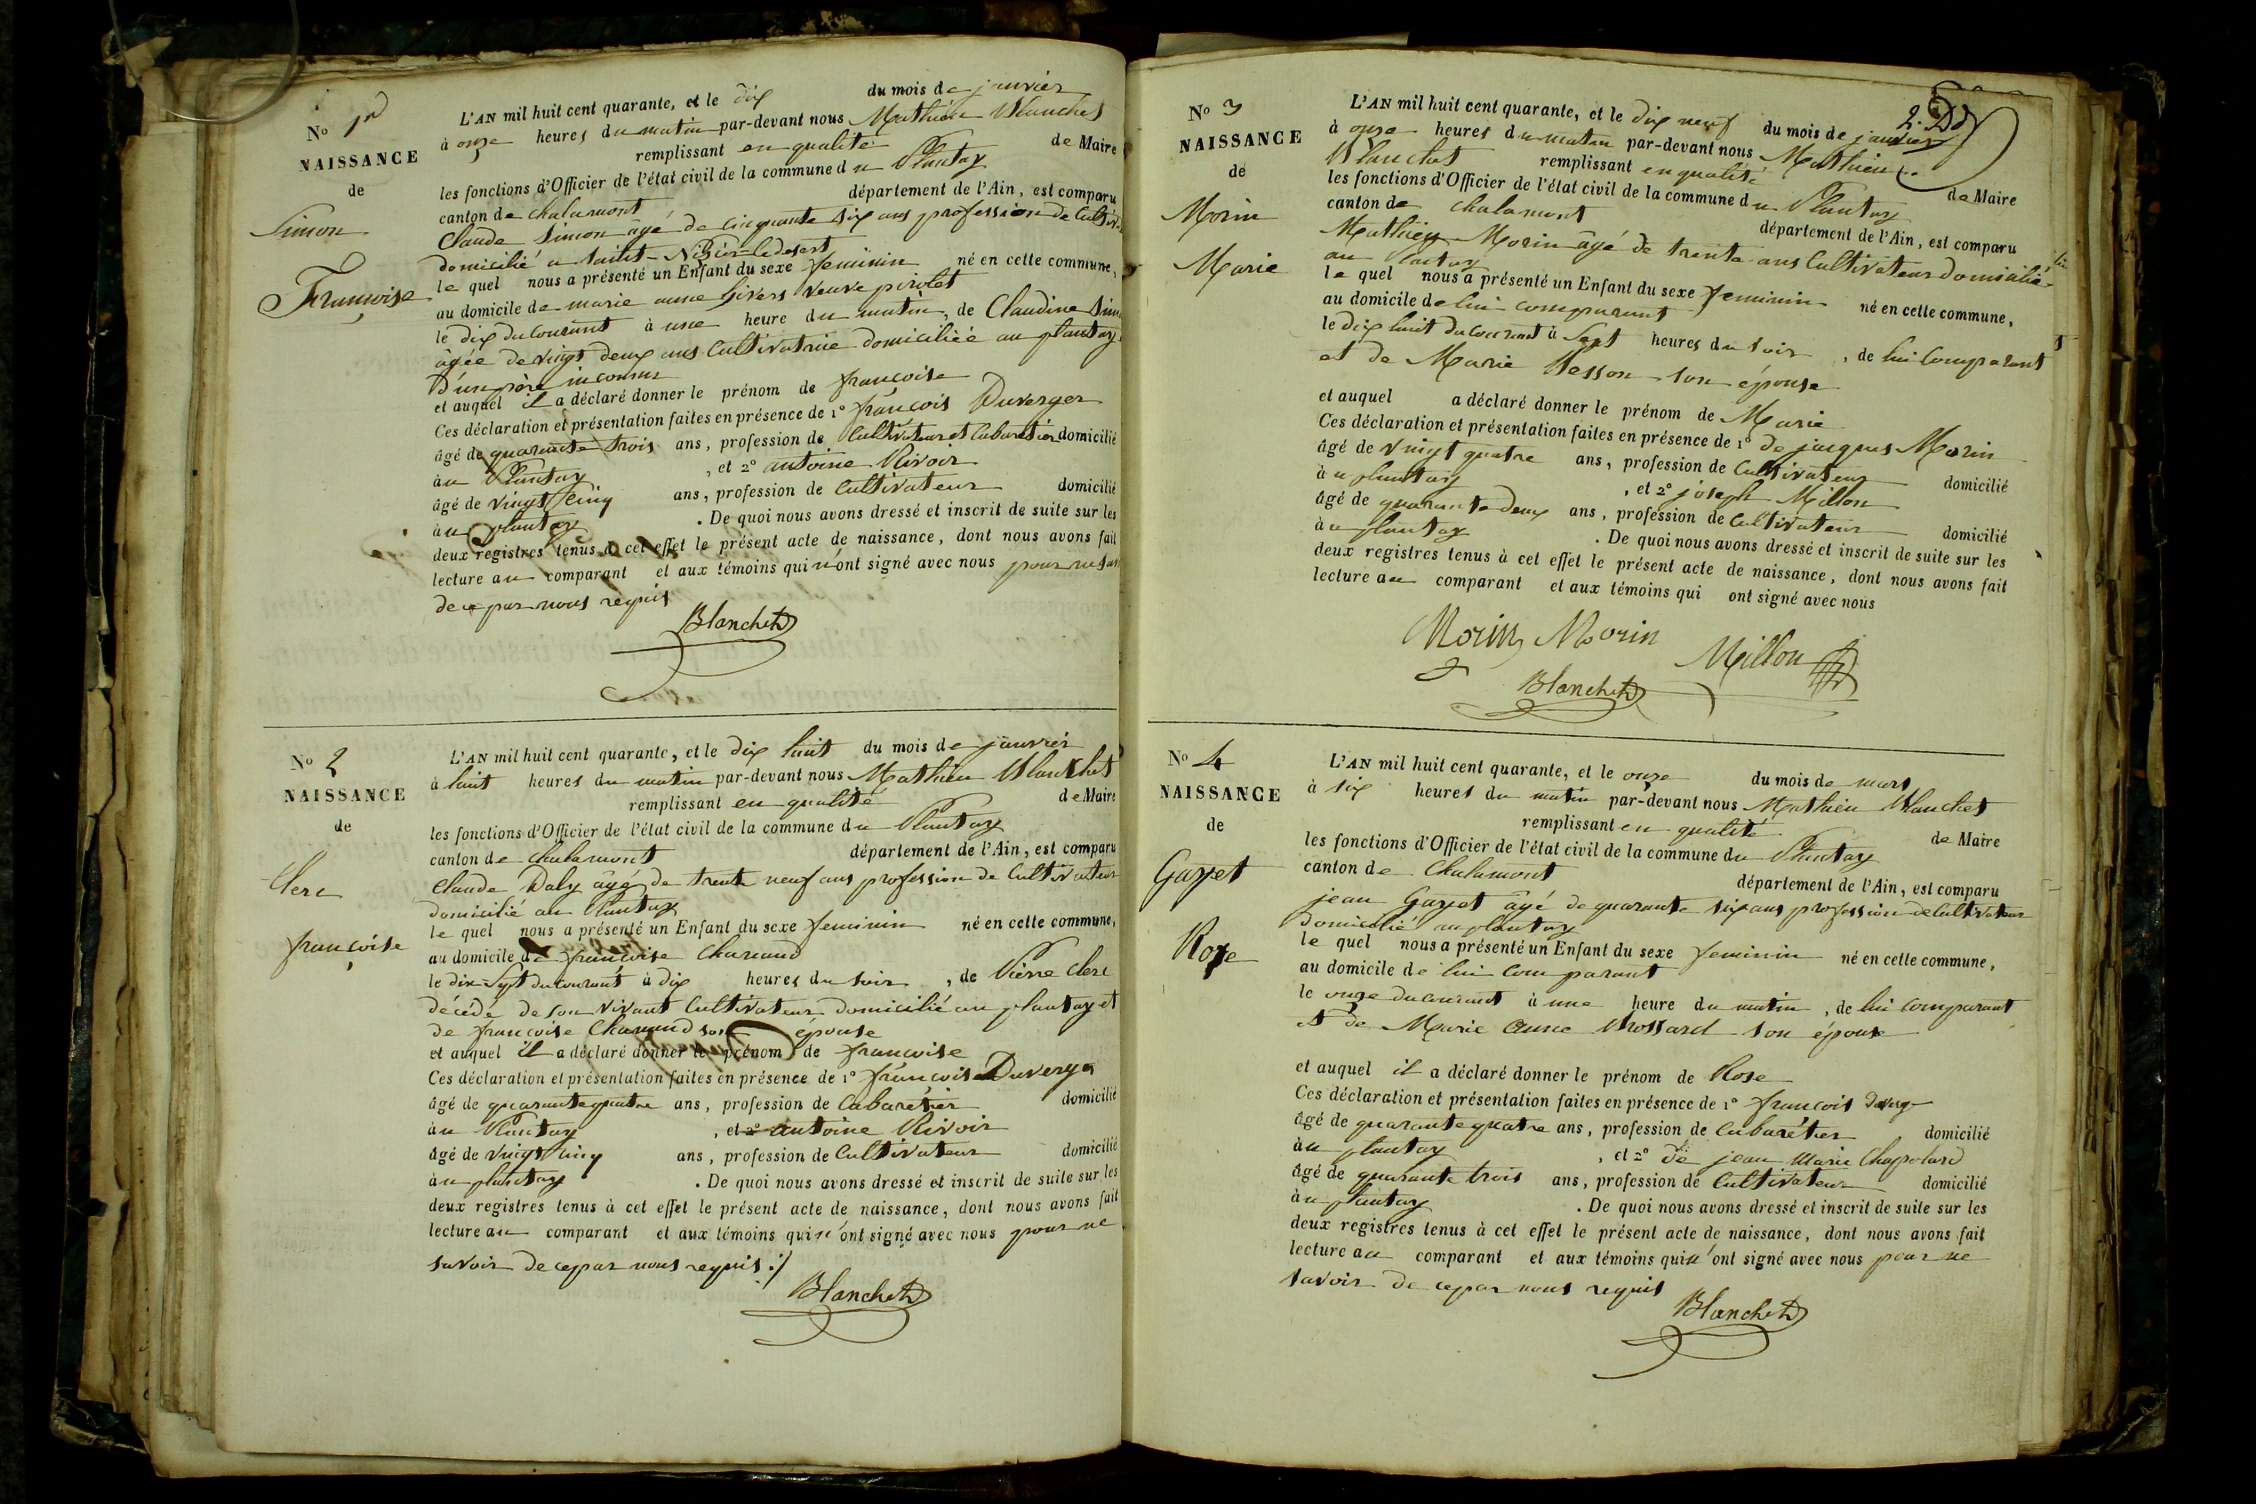 No 1er
NAISSANCE
de
Simon
Francoise
L'AN mil huit cent quarante, et le dix du mois de janvier
à onze heures du matin par-devant nous Mathieu Blanchet
remplissant en qualité de Maire
les fonctions d'Officier de l'état civil de la commune du Plantay
canton de chalamont département de l'Ain, est comparu
Claude Simon agé de cinquante six ans profession de Cultiv
domicilié a saint-Nizier le desert
le quel nous a présenté un Enfant du sexe feminin né en cette commune,
au domicile de marie anne veuve pirolet
le dix du courant à une heure du matin, de Claudine Sim
âgée de vingt deux ans Cultivatrice domiciliée au plantay
D'un père inconnu
et auquel il a déclaré donner le prénom de francoise
Ces déclaration et présentation faites en présence de 1° françois Duverger
âgé de quarante trois ans, profession de Cultivateur et Cabaretier domicilié
àu Plantay , et 2° antoine Rivoir
âgé de vingt cinq ans, profession de Cultivateur domicilié
àu plantay . De quoi nous avons dressé et inscrit de suite sur les
deux registres tenus à cet effet le présent acte de naissance, dont nous avons fait
lecture au comparant et aux témoins qui n'ont signé avec nous pour ne savoir
de ce par nous requis
Blanchet
No 2
NAISSANCE
de
Clerc
françoise
L'AN mil huit cent quarante, et le dix huit du mois de janvier
à huit heures du matin par-devant nous Mathieu Blanchet
remplissant en qualité de Maire
les fonctions d'Officier de l'état civil de la commune du Plantay
canton de chalamont département de l'Ain, est comparu
Claude Daly âgé de trente neuf ans profession de Cultivateur
domicilié au Plantay
le quel nous a présenté un Enfant du sexe feminin né en cette commune,
au domicile de françoise Charnaud
le dix Sept du courant à dix heures du soir , de Pierre Clerc
décédé de son vivant Cultivateur domicilié au plantay et
de françoise son épouse
et auquel il a déclaré donner le prénom de francoise
Ces déclaration et présentation faites en présence de 1° françois Duverger
âgé de quarante quatre ans, profession de Cabaretier domicilié
àu Plantay , et 2° antoine Rivoir
âgé de vingt cinq ans, profession de Cultivateur domicilié
àu plantay . De quoi nous avons dressé et inscrit de suite sur les
deux registres tenus à cet effet le présent acte de naissance, dont nous avons fait
lecture au comparant et aux témoins qui n'ont signé avec nous pour ne
savoir de ce par nous requis ./
Blanchet
2.
No 3
NAISSANCE
de
Morin
Marie
L'AN mil huit cent quarante, et le dix neuf du mois de janvier
à onze heures du matin par-devant nous Mathieu
Blanchet remplissant en qualité de Maire
les fonctions d'Officier de l'état civil de la commune du Plantay
canton de chalamont département de l'Ain, est comparu
Mathieu Morin âgé de trente ans Cultivateur domicilié
au plantay
le quel nous a présenté un Enfant du sexe feminin né en cette commune,
au domicile de lui comparant
le dix huit du courant à Sept heures du soir , de lui Comparant
et de Marie Besson son épouse
et auquel a déclaré donner le prénom de Marie
Ces déclaration et présentation faites en présence de 1° de jacques Morin
âgé de vingt quatre ans, profession de Cultivateur domicilié
àu plantay , et 2° joseph Millon
âgé de quarante deux ans, profession de Cultivateur domicilié
àu plantay . De quoi nous avons dressé et inscrit de suite sur les
deux registres tenus à cet effet le présent acte de naissance, dont nous avons fait
lecture au comparant et aux témoins qui ont signé avec nous
Morin Morin Millon
Blanchet
No 4
NAISSANCE
de
Gayet
Roze
L'AN mil huit cent quarante, et le onze du mois de mars
à six heures du matin par-devant nous Mathieu Blanchet
remplissant en qualité de Maire
les fonctions d'Officier de l'état civil de la commune du Plantay
canton de Chalamont département de l'Ain, est comparu
jean Gayet âgé de quarante six ans profession de Cultivateur
domicilié au plantay
le quel nous a présenté un Enfant du sexe feminin né en cette commune,
au domicile de lui Comparant
le onze du courant à une heure du matin , de lui Comparant
et de Marie Anne Brossard son épouse
et auquel il a déclaré donner le prénom de Rose
Ces déclaration et présentation faites en présence de 1° francois Duverger
âgé de quarante quatre ans, profession de Cabarétier domicilié
àu plantay , et 2° de jean Marie Chapoland
âgé de quarante trois ans, profession de Cultivateur domicilié
àu plantay . De quoi nous avons dressé et inscrit de suite sur les
deux registres tenus à cet effet le présent acte de naissance, dont nous avons fait
lecture au comparant et aux témoins qui n'ont signé avec nous pour ne
savoir de ce par nous requis
Blanchet